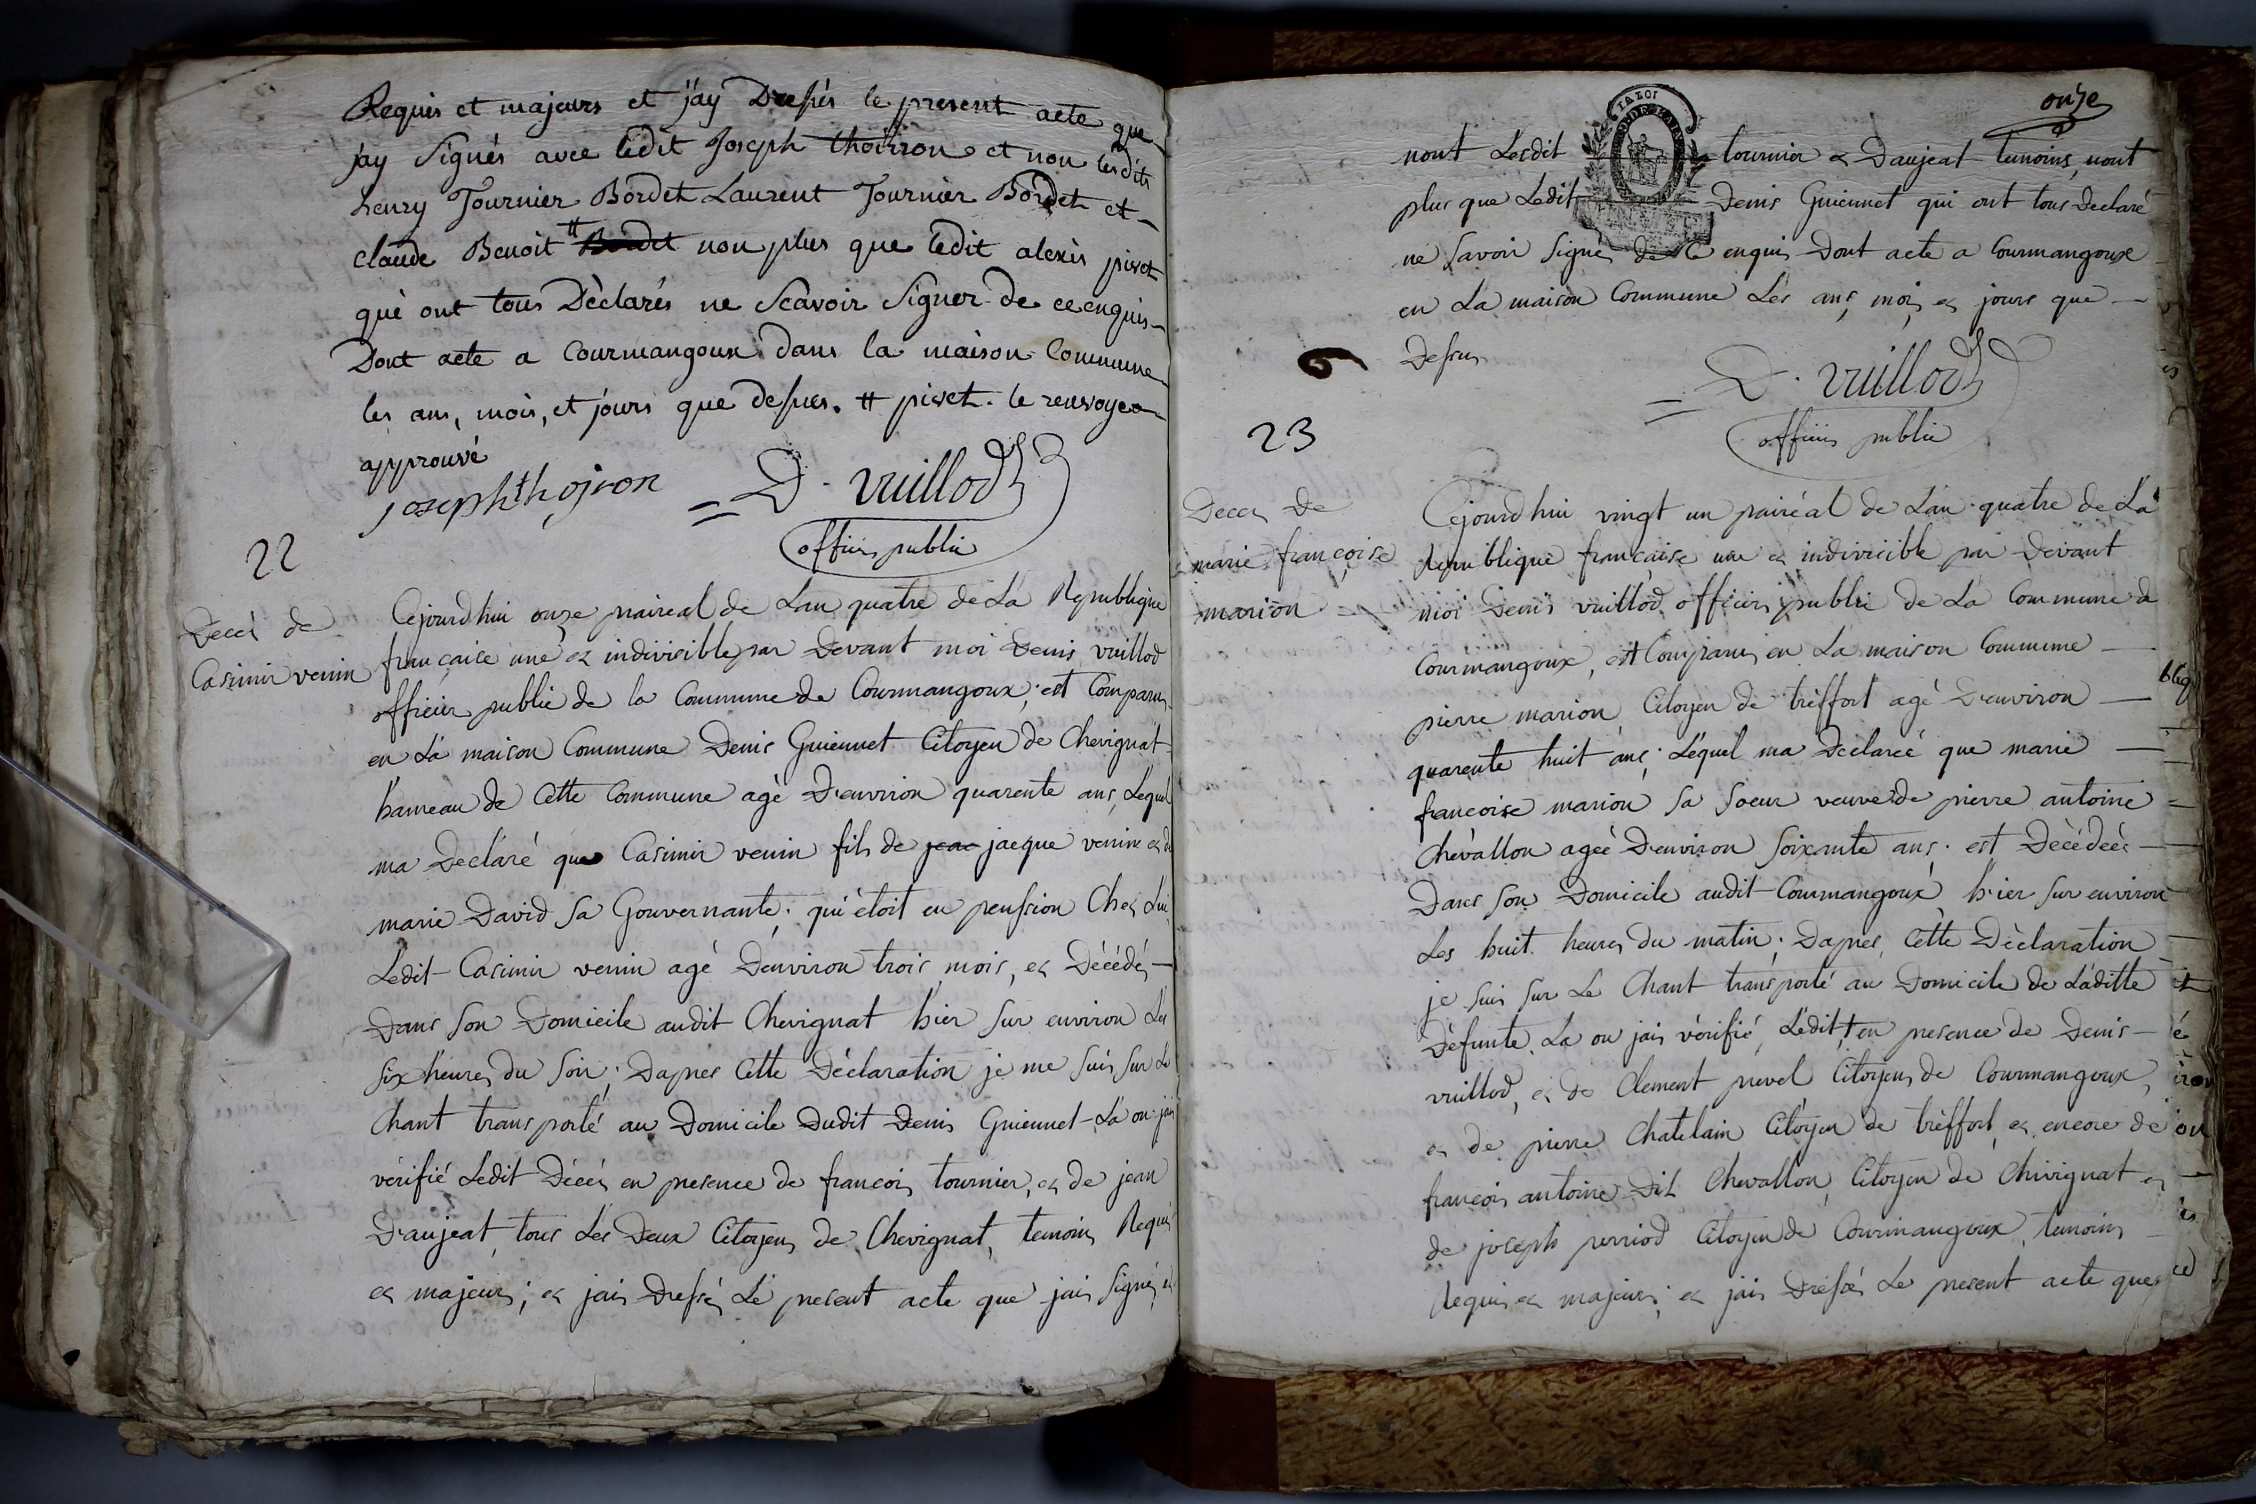 Requis et majeurs et j'ay Dressés le present acte que
jay Signés avec ledit Joseph thoirron et non lesdits
henry Tournier Bordet Laurent Tournier Bordet et
claude Benoit # Bordet non plus que ledit alexis pivet
què ont tous Dèclarés ne Scavoir Signer de ce enquis
Dont acte a Courmangoux dans la maison Commune
les ans, mois, et jours que dessues. # pivet. le renvoye
approuvé
joseph thojron = D. vuillod
officier public
22
Decès de
Casimir venin
Cejourdhui onze prairéal de Lan quatre de La Republique
française une et indivisible par Devant moi Denis vuillod
officier public de la Commune de Courmangoux, est Comparus
en La maison Commune Denis Guiennet Citoyen de Chevignat
hameau de Cette Commune agé D'environ quarente ans, Lequel
ma Declaré que Casimir venin fils de jean jacque venin et de
marie David Sa Gouvernante, qui étoit en penssion Chez Lui
Ledit Casimir venin agé D'environ trois mois, es Décédés
Dans Son Domicile audit Chevignat hier Sur environ Les
Six heures du Soir; Dapres Cette Dèclaration je me Suis Sur Le
Chant transporté au Domicile Dudit Denis Guiennet La ou jais
vérifié Ledit Décés en presence de francois tournier, et de jean
D'aujeat, tous Les Deux Citoyens de Chevignat, temoins Requis
et majeurs; et jais Dressés Lé present acte que jais Signés, et
onze
LA LOI
nont Lesdit tournier et Daujeat temoins, nont
plus que Ledit Denis Guiennet qui ont tous Declaré
ne Savoir Signés de Ce enquis Dont acte a Courmangoux
en La maison Commune Les ans, mois et jours que
Dessus
= D. vuillod
officier public
23
Deces De
marie françoise
marion
Cejourdhui vingt un prairéal de Lan quatre de La
Republique française une et indivisible par Devant
moi Denis vuillod officier public de La Commune d
Courmangoux, est Comparus en La maison Commune
pierre marion Citoyen de trèffort agé D'environ
quarente huit ans; Léquel ma Declareé que marie
francoise marion Sa Soeur veuve de pierre antoine
Chèvallon ageé D'environ Soixante ans. est Dècèdeés
Dans Son Domicile audit Courmangoux hier Sur environ
Les huit heures Du matin; Dapres Cette Déclaration
je Suis Sur Le Chant transporté au Domicile de Laditte
Dèfunte. La ou jais vèrifié Ledit, en presence de Denis
vuillod, et de Clement prevel Citoyens de Courmangoux,
et de pierre Chatelain Citoyen de trèffort et encore de
francois antoine Dit Chevallon, Citoyen de Chivignat et
de joseph perriod Citoyen de Courmangoux, temoins
Requis et majeurs; et jais Dressés Le present acte que